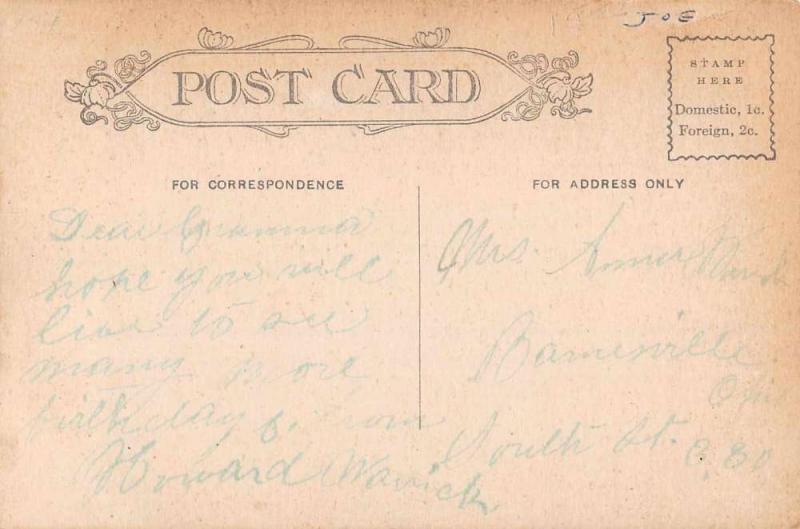 JOE
POST CARD
STAMP
HERE
Domestic, 1c.
Foreign, 2c.
FOR CORRESPONDENCE
Dear Gramma
hope you will
live to see
many more
birthdays. from
Howard Warrick
FOR ADDRESS ONLY
Mrs. Anna
Barnesville
Ohio
South St.